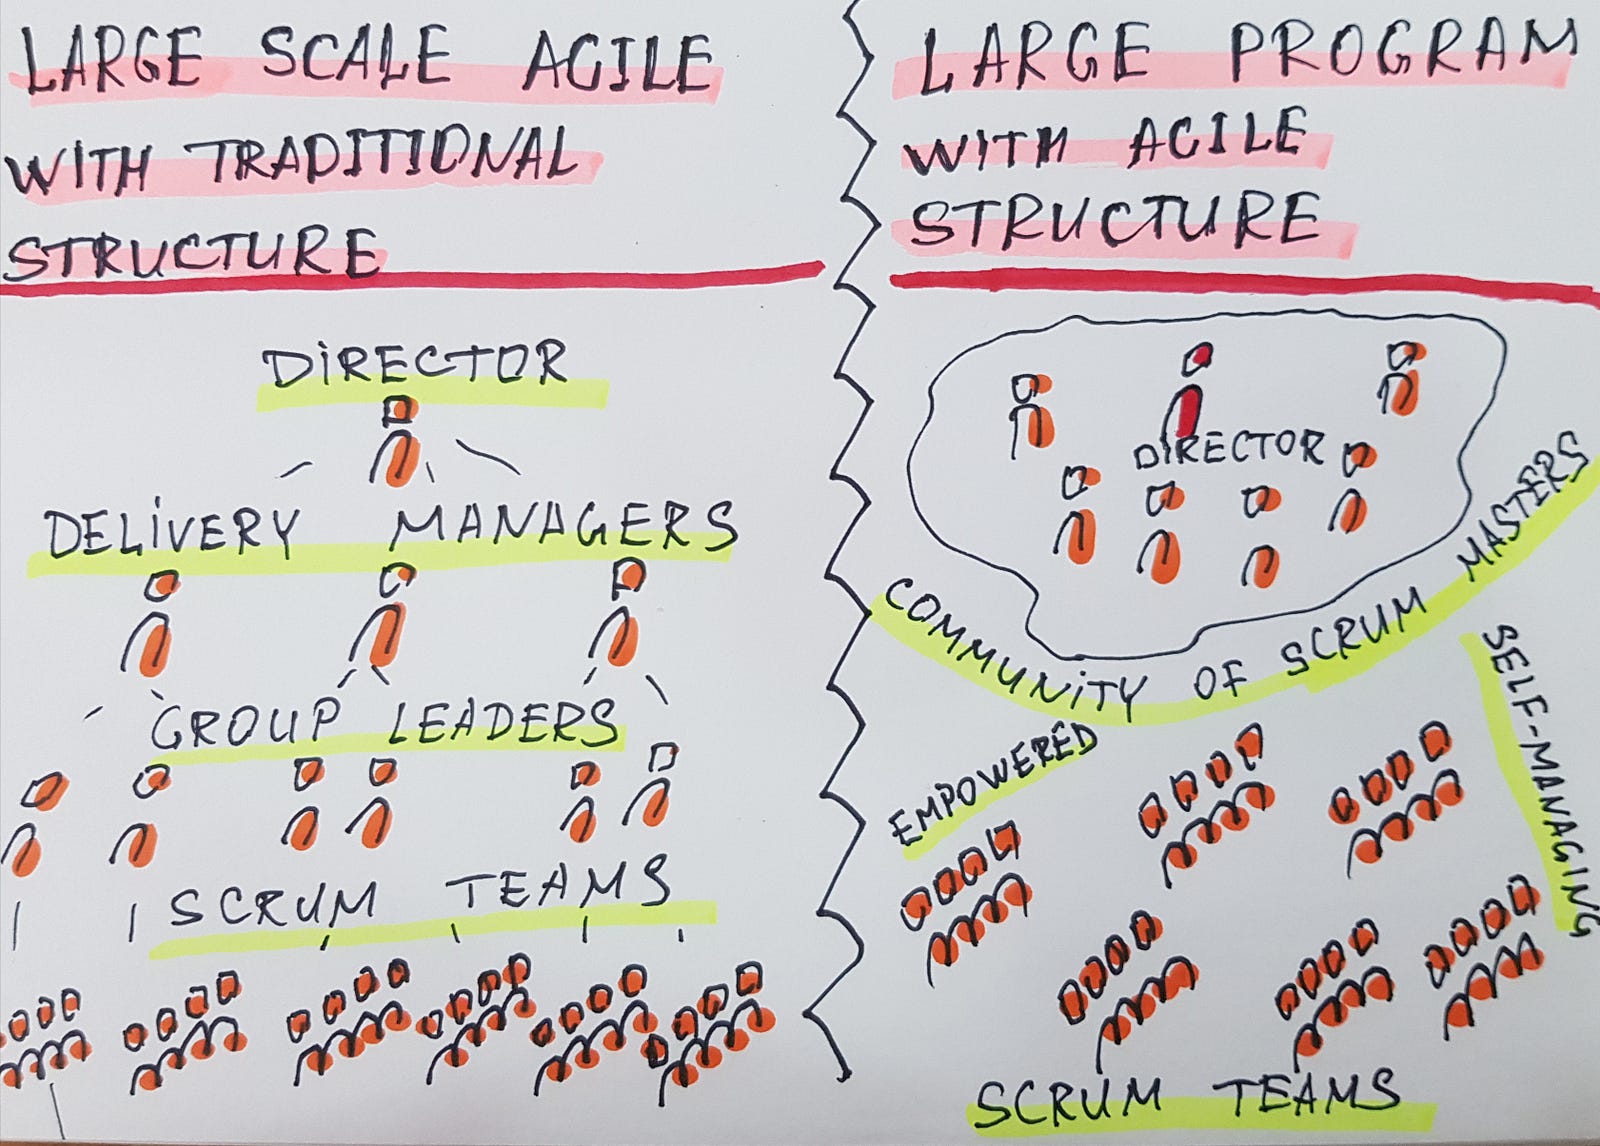 LARGE SCALE AGILE
WITH TRADITIONAL
STRUCTURE
DIRECTOR
DELIVERY MANAGERS
GROUP LEADERS
SCRUM TEAMS
LARGE PROGRAM
WITH AGILE
STRUCTURE
DIRECTOR
COMMUNITY OF SCRUM MASTERS
EMPOWERED
SELF-MANAGING
SCRUM TEAMS